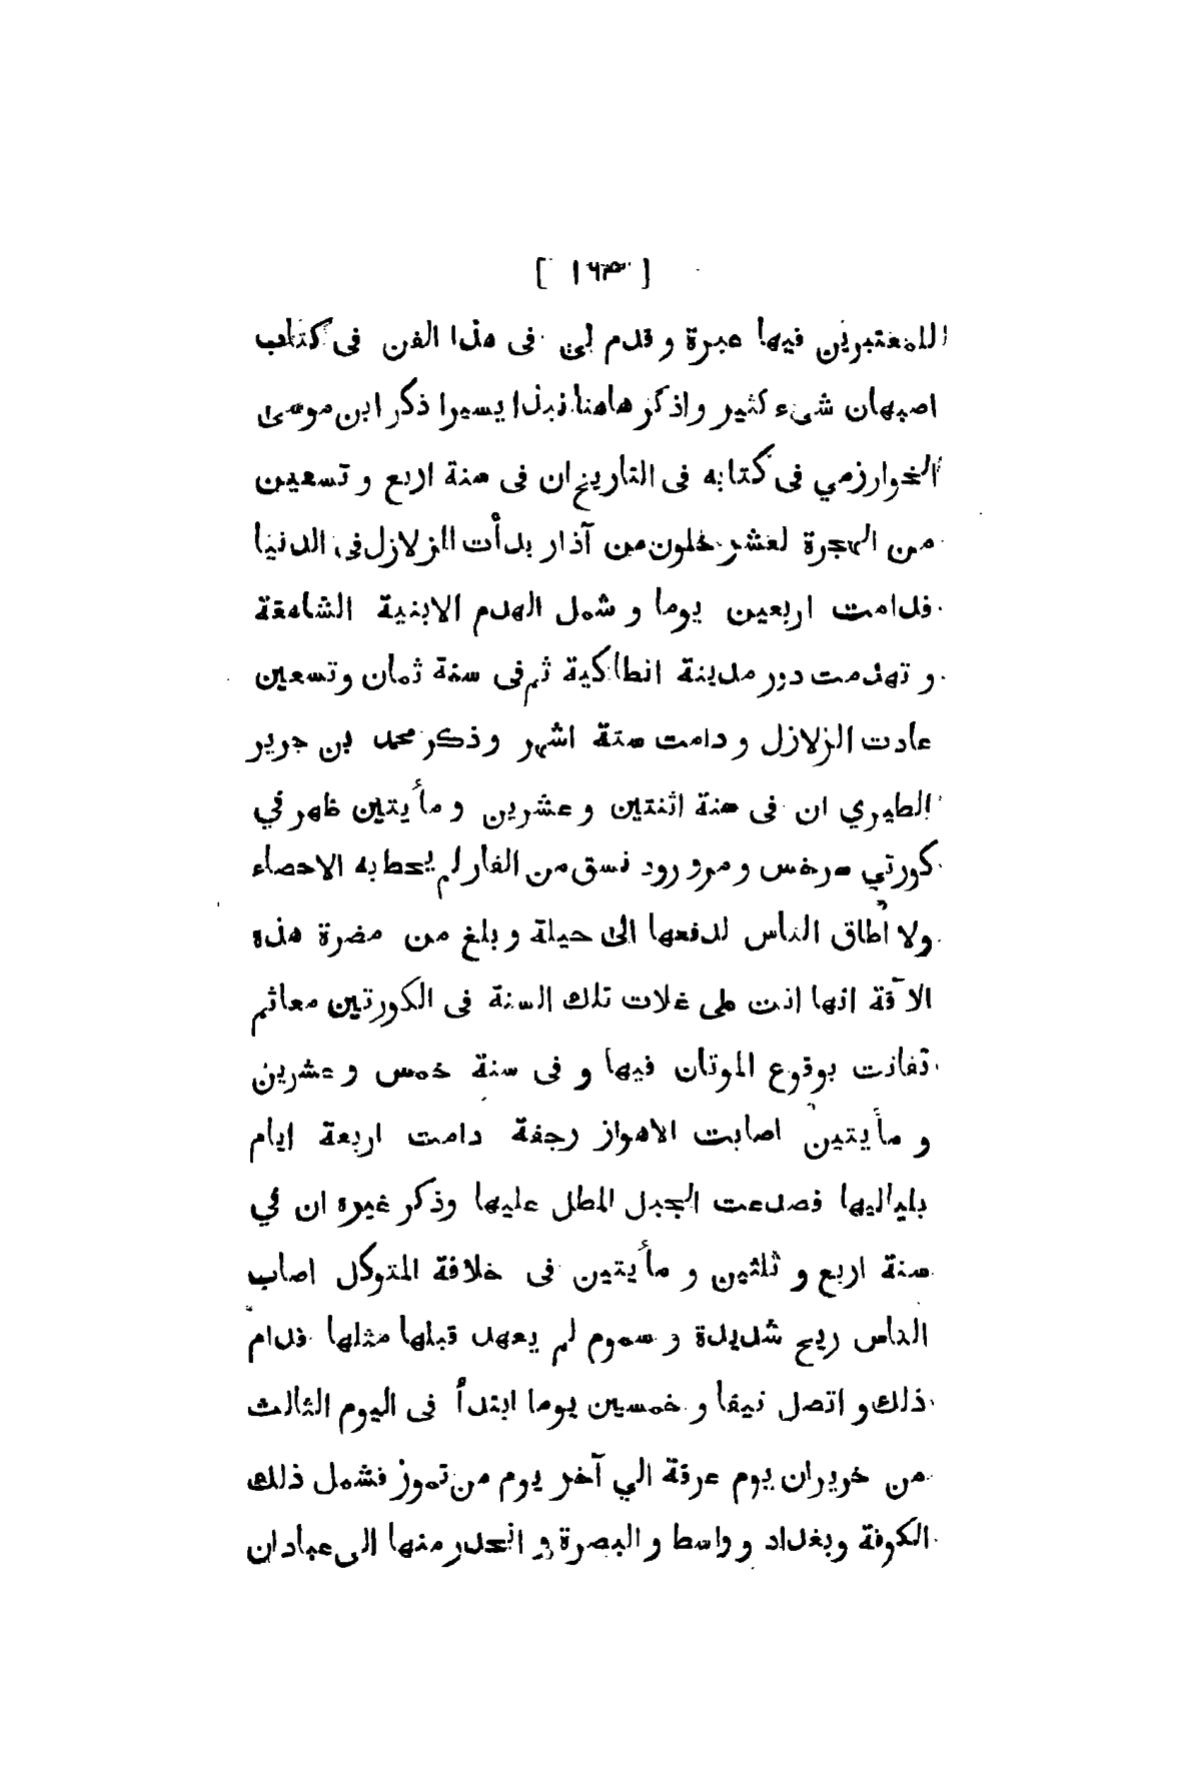 [ ١٦٣ ]
للمعتبرين فيها عبرة و قدم لي فى هذا الفن فى كتاب
اصبهان شىء كثير واذكر هاهنا نبذا يسيرا ذكر ابن موسى
الخوارزمي فى كتابه فى التاريخ ان فى سنة اربع و تسعين
من الهجرة لعشر خلون من آذار بدأت الزلازل فى الدنيا
فدامت اربعين يوما و شمل الهدم الابنية الشاهقة
و تهدمت دور مدينة انطاكية ثم فى سنة ثمان وتسعين
عادت الزلازل و دامت ستة اشهر و ذكر محمد بن جرير
الطبري ان فى سنة اثنتين و عشرين و مأيتين ظهر في
كورتي سرخس و مرو رود فسق من الفار لم يحط به الاحصاء
ولا اطاق الناس لدفعها الى حيلة و بلغ من مضرة هذه
الآفة انها اتت على غلات تلك السنة فى الكورتين معا ثم
تفانت بوقوع الموتان فيها و فى سنة خمس و عشرين
و مأيتين اصابت الاهواز رجفة دامت اربعة ايام
بلياليها فصدعت الجبل المطل عليها وذكر غيره ان في
سنة اربع و ثلثين و مأيتين فى خلافة المتوكل اصاب
الناس ريح شديدة و سموم لم يعهد قبلها مثلها فدام
ذلك و اتصل نيفا و خمسين يوما ابتدأ فى اليوم الثالث
من خريران يوم عرفة الي آخر يوم من تموز فشمل ذلك
الكوفة وبغداد و واسط و البصرة و انحدر منها الى عبادان